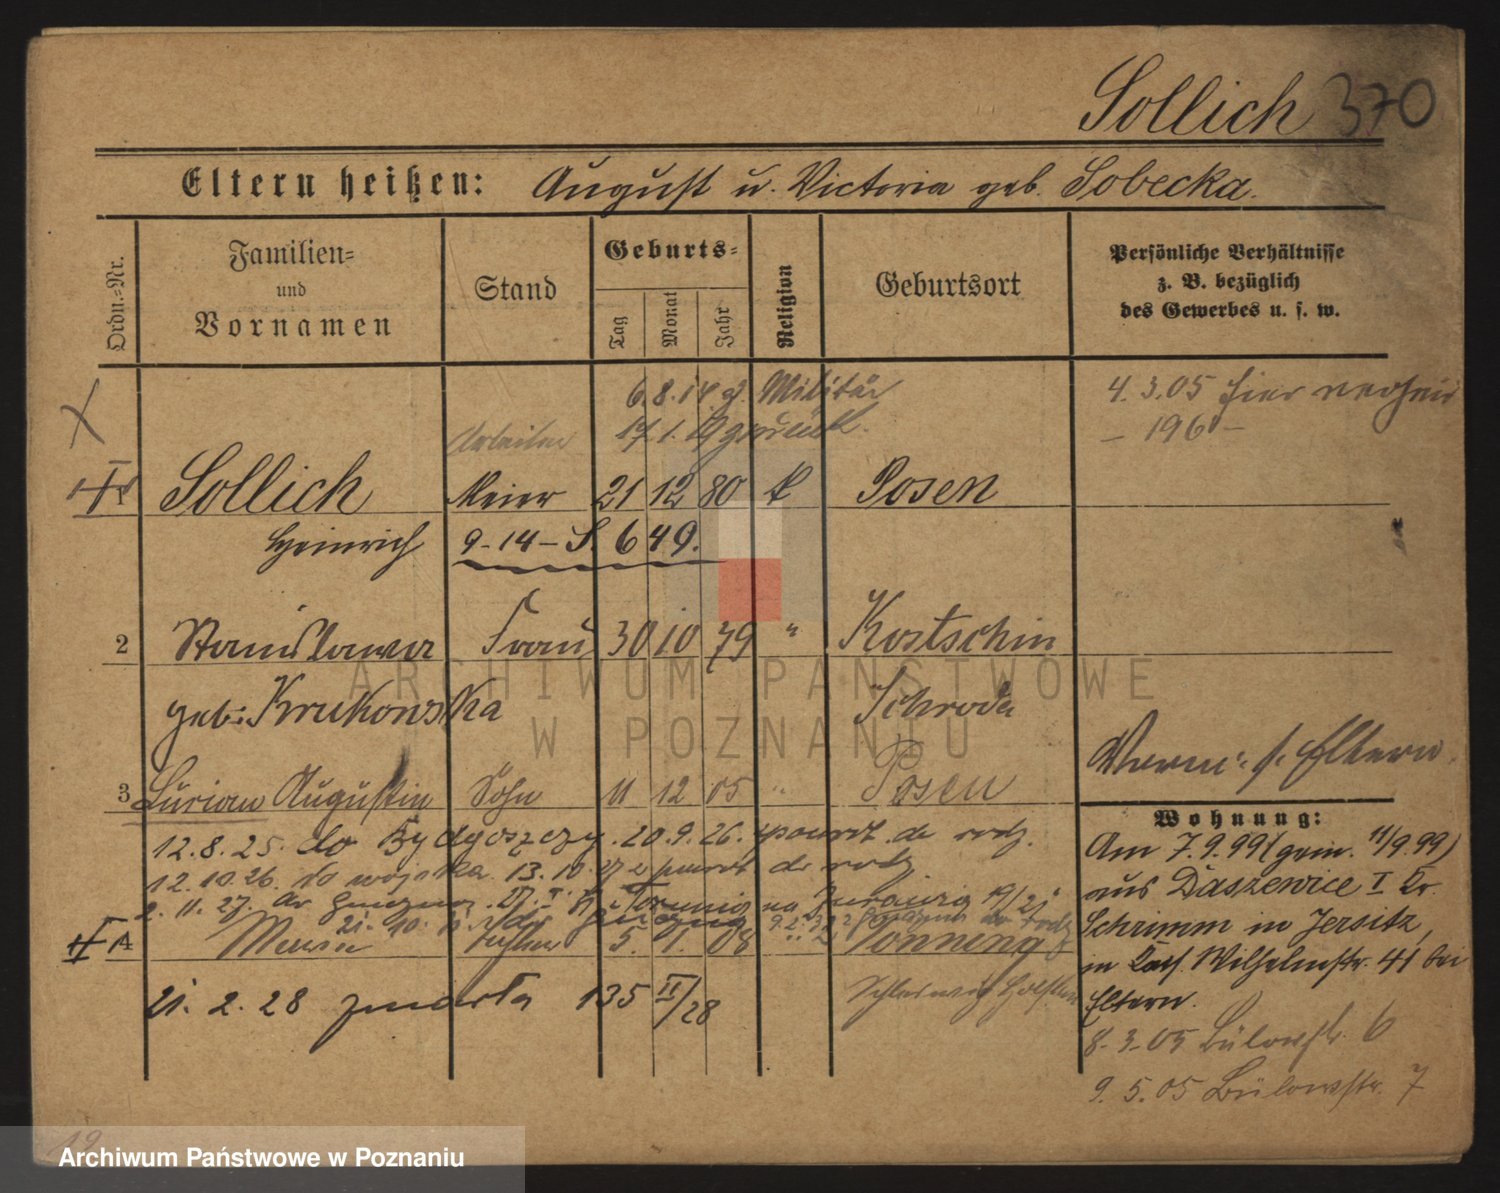 Sollich 370
Eltern heißen: August u. Victoria geb. Sobecka.
Ordn.-Nr.
Familien-
und
Vornamen
Stand
Geburts-
Tag
Monat
Jahr
Religion
Geburtsort
Persönliche Verhältnisse
z. B. bezüglich
des Gewerbes u. s. w.
6.8.14 z. Militär
17.1.19 zurück.
4.3.05 hier
– 196 –
Arbeiter
I 1 Sollich Meier 21 12 80 k Posen
Heinrich 9-14-S. 649.
2 Stanislawa Frau 30 10 79 " Kostschin
geb. Krukowska Schroda
Verm: s. Eltern.
3 Lucian Augustin Sohn 11 12 05 " Posen
Wohnung:
12.8.25. do Bydgoszczy. 20.9.26. powrót do rodz.
12.10.26. do wojska. 13.10.27 z powrót do rodz
2.11.27.
II 4 Maria Tochter 5. 1. 08 Tönning
Schleswig Holstein
21. 2. 28 zmarła 135 II/28
Am 7.9.99 (gem. 11/9.99)
aus Daszewice I Kr.
Schrimm in Jersitz,
in Kais. Wilhelmstr. 41 bei
Eltern.
8.3.05 Bülowstr. 6
9.5.05 Bülowstr. 7
19
ARCHIWUM PAŃSTWOWE
W POZNANIU
Archiwum Państwowe w Poznaniu